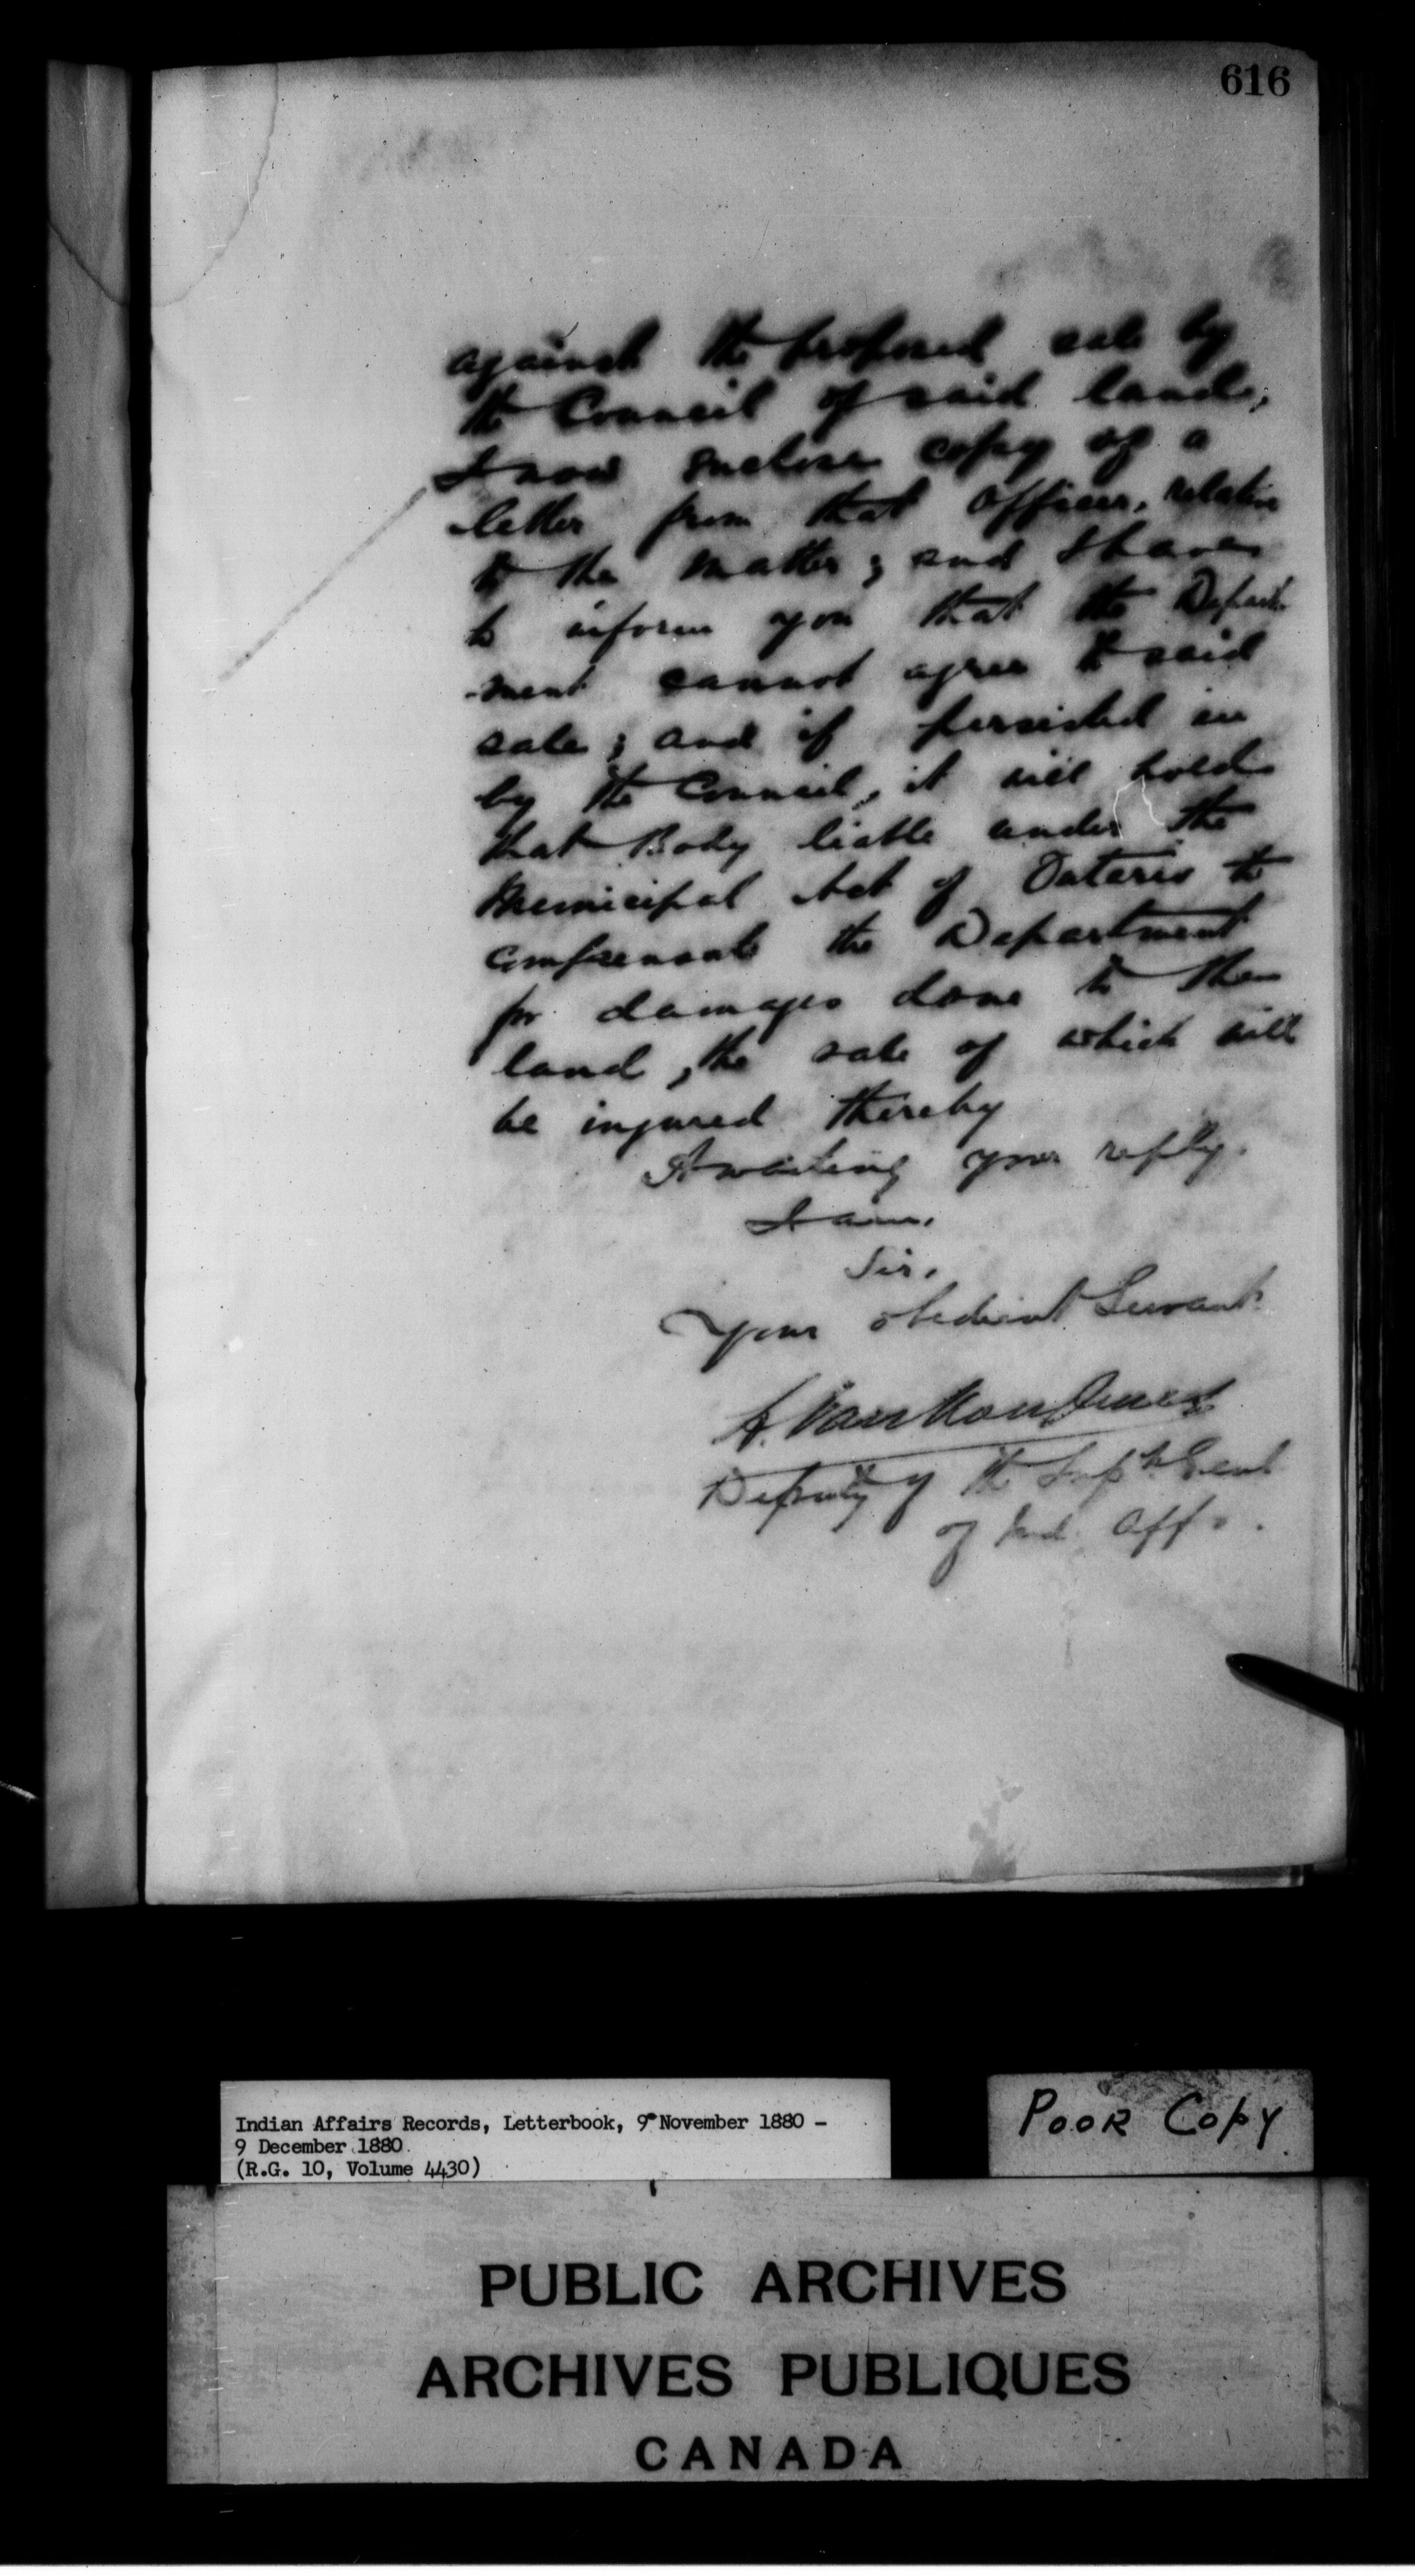 616
against the proposed sale by
the Council of said land;
I now enclose copy of a
letter from that officer, relative
to the matter; and I have
to inform you that the Depart
-ment cannot agree to said
sale; and if persisted in
by the Council, it will hold
that Body liable under the
Municipal Act of Ontario to
compensate the Department
for damages done to the
land, the sale of which will
be injured thereby
Awaiting your reply.
I am,
Sir,
Your obedient Servant
L. VanKoughnet
Deputy of the Supt. Genl
of Ind. Affs.
Indian Affairs Records, Letterbook, 9 November 1880 -
9 December 1880.
(R.G. 10, Volume 4430)
POOR COPY
PUBLIC ARCHIVES
ARCHIVES PUBLIQUES
CANADA